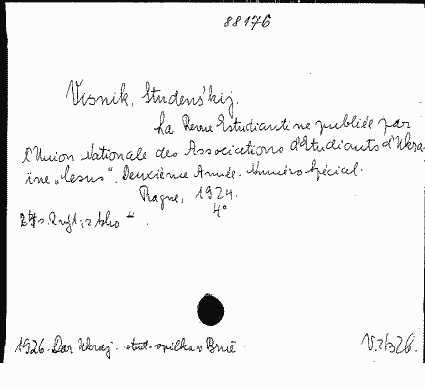 88176
Visnik, Studens'kij.
La Revue Estudiantine publiée par
l'Union Nationale des Associations d'Étudiants d'Ukra-
ine „Cesus“. Deuxième Année. Numéro Spécial.
Prague, 1924.
4°
1926. Dar Ukraj. stud. spilka v Brně